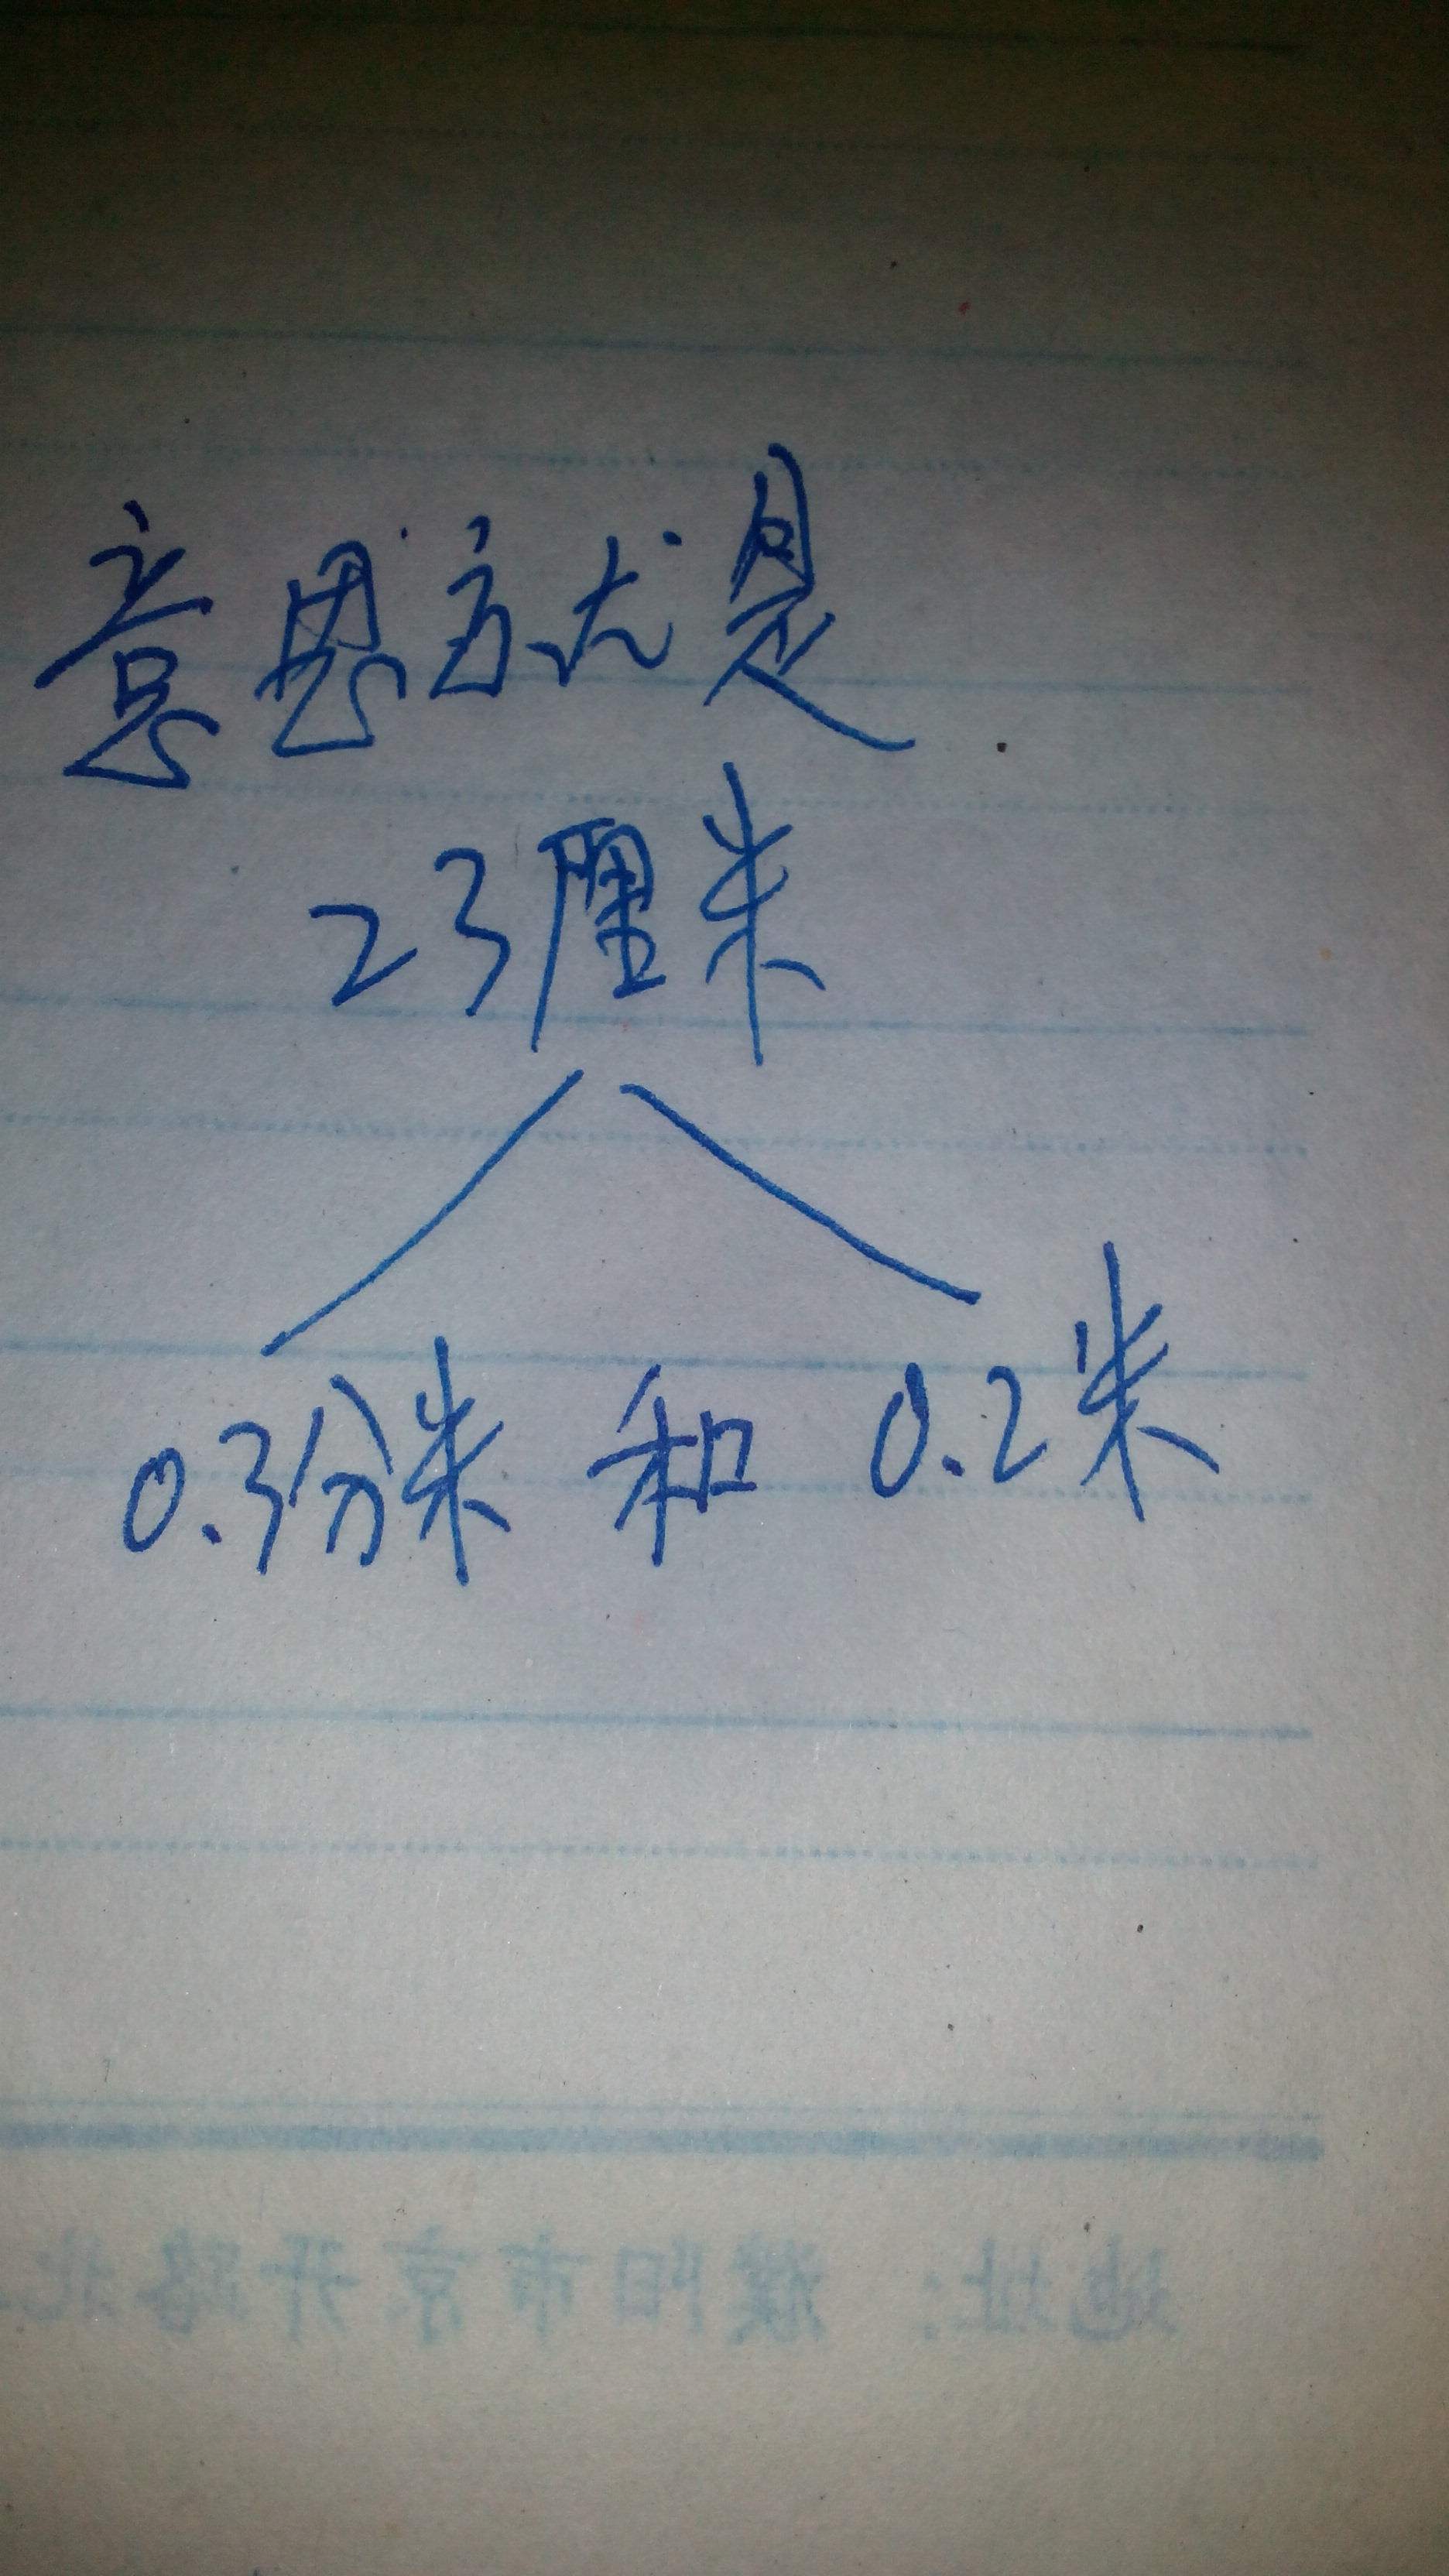 意思就是
23厘米
0.3份米 和 0.2米
地址：濮阳市京开路北